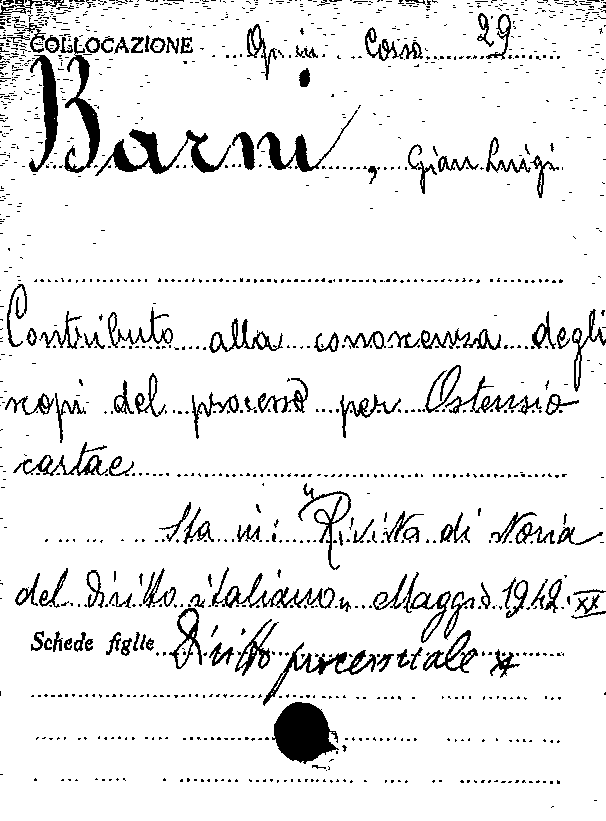 COLLOCAZIONE Op. in Corso 29
Barni, Gian Luigi
Contributo alla conoscenza degli
scopi del processo per Ostensio
cartae
Sta in: "Rivista di Storia
del diritto italiano„ Maggio 1942. XX
Schede figlie Diritto processuale *